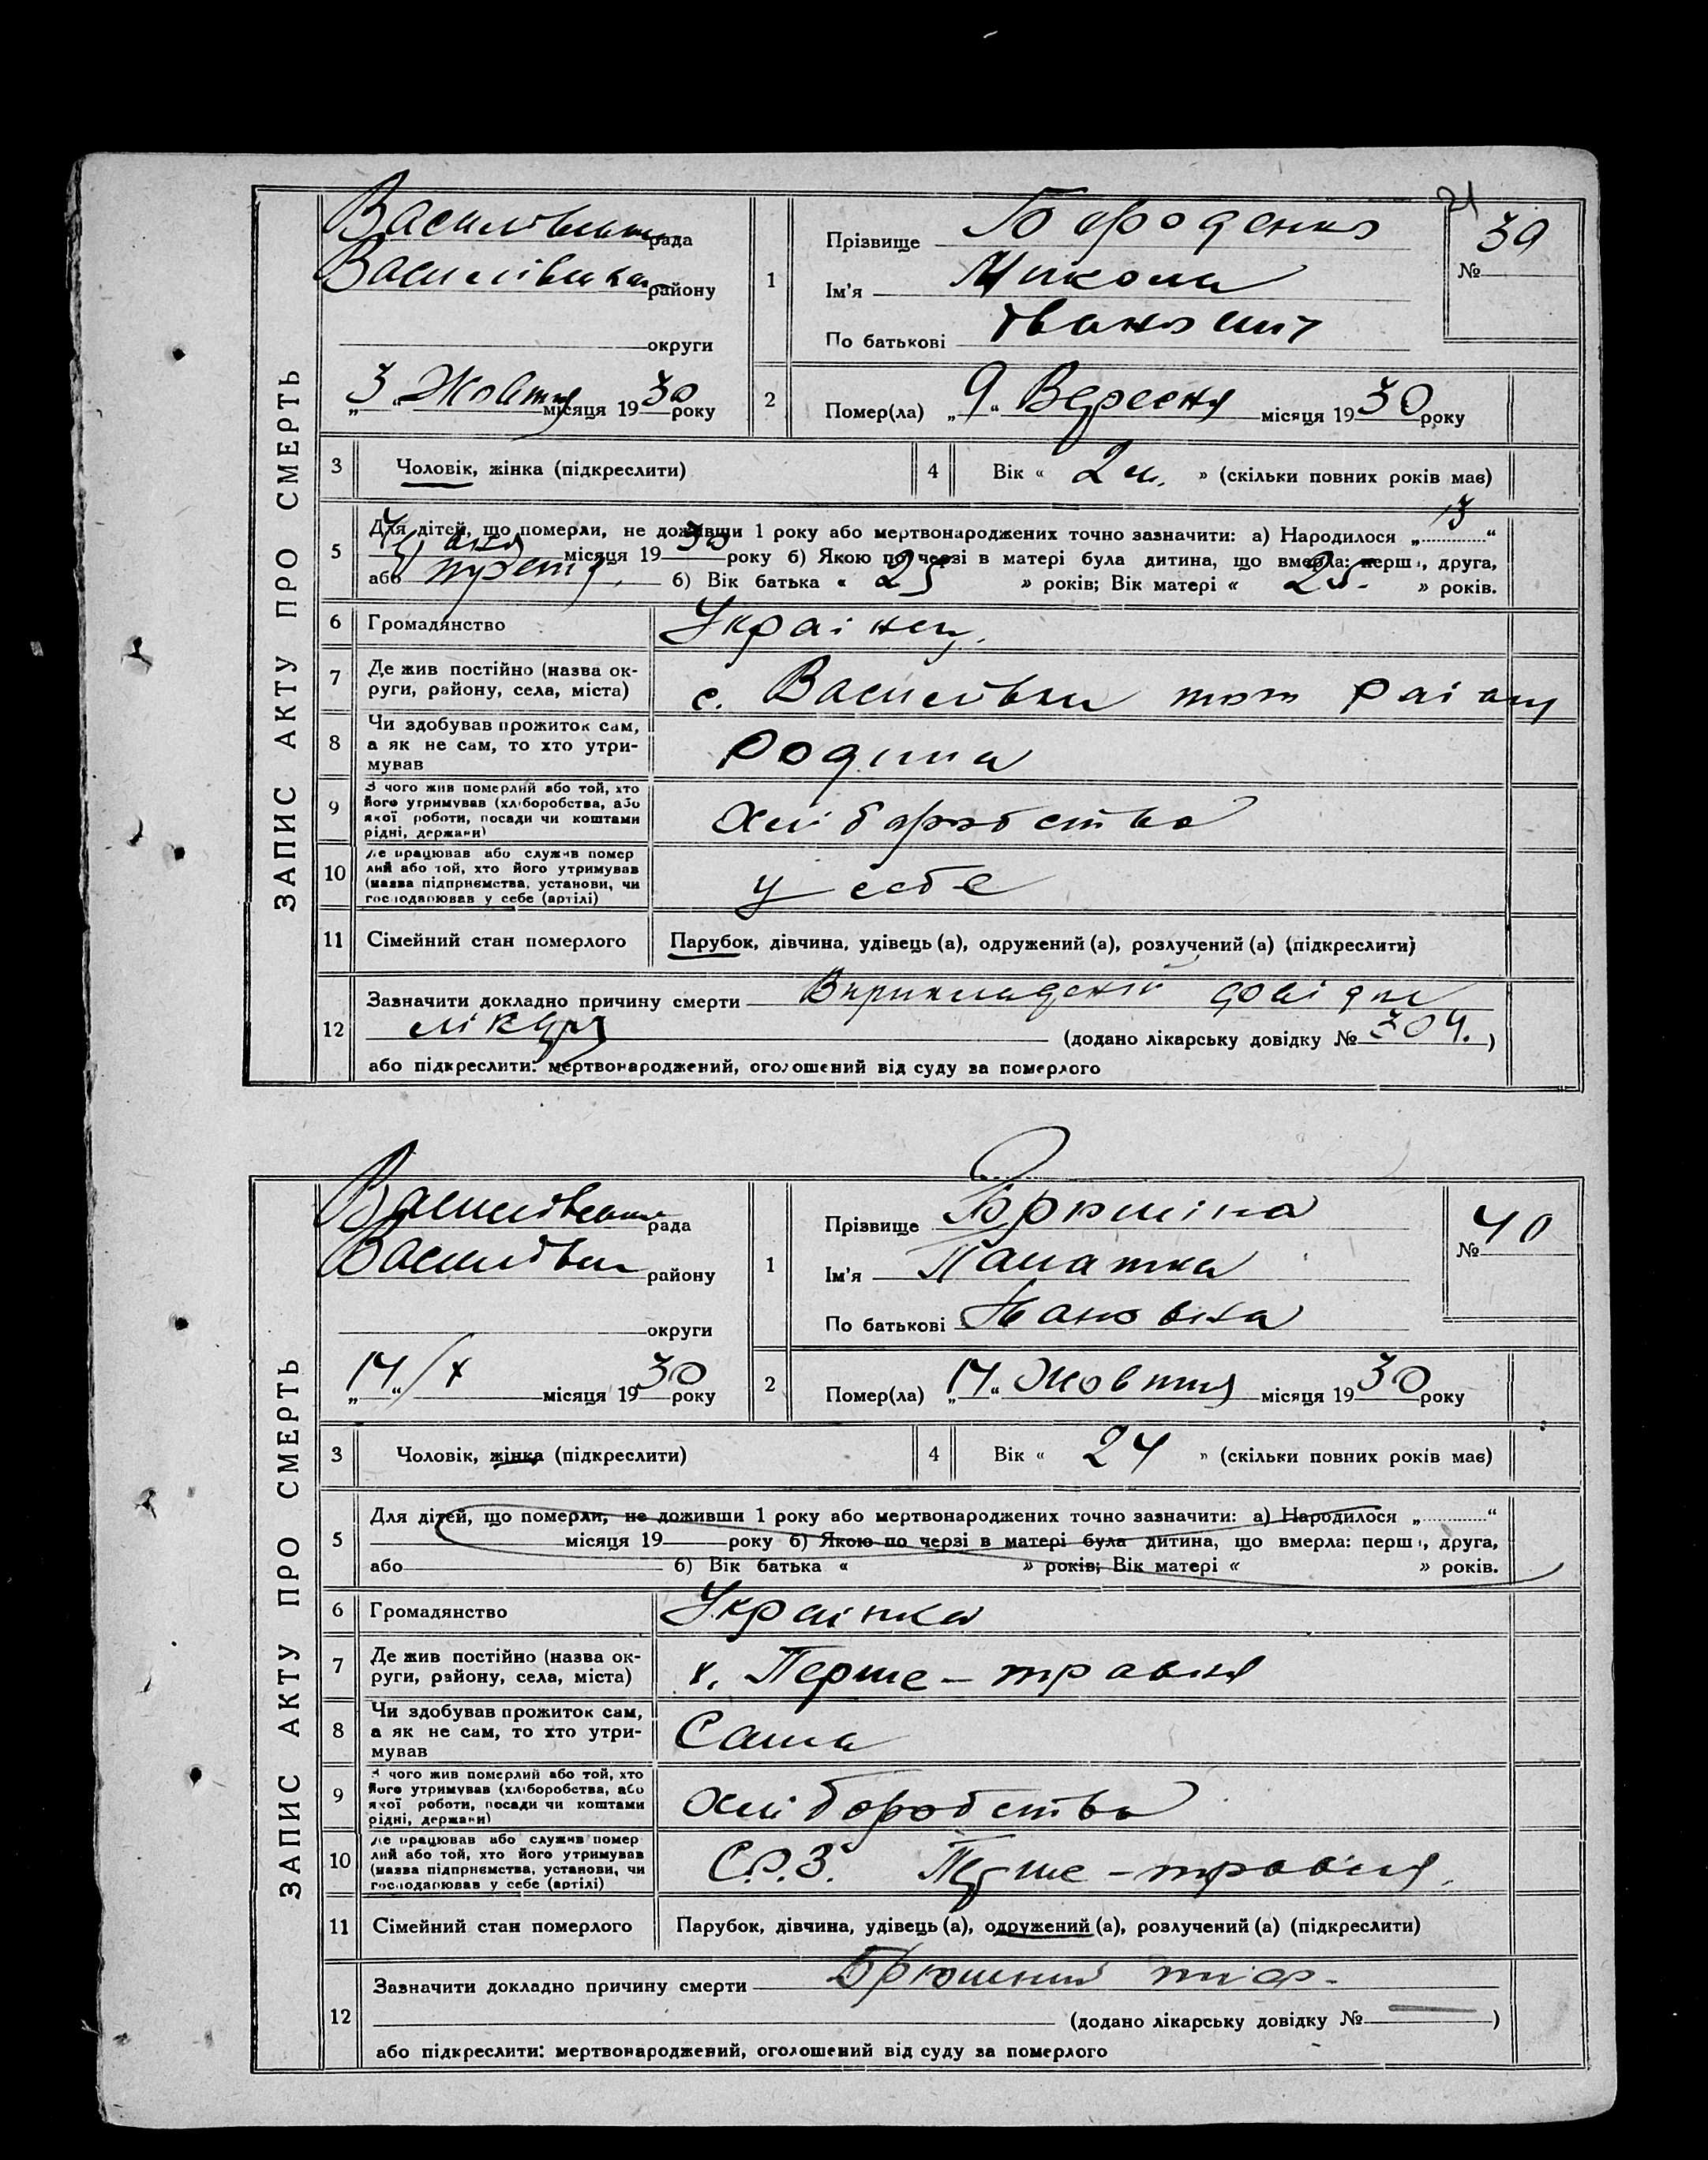 21
ЗАПИС АКТУ ПРО СМЕРТЬ
Василівська рада
Василівська району
округи
„3“ Жовтня місяця 1930 року
1
Прізвище Бороденко
Ім'я Микола
По батькові Іванович
№ 39
2
Помер(ла) „9“ Вересня місяця 1930 року
3 Чоловік, жінка (підкреслити)
4 Вік « 2 м. » (скільки повних років має)
5 Для дітей, що померли, не доживши 1 року або мертвонароджених точно зазначити: а) Народилося „13“
місяця 1930 року б) Якою по черзі в матері була дитина, що вмерла: перша, друга,
або третя, б) Вік батька « 25 » років; Вік матері « 25 » років.
6 Громадянство Українец.
7 Де жив постійно (назва округи, району, села, міста) с. Василівка того району
8 Чи здобував прожиток сам, а як не сам, то хто утримував родина
9 З чого жив померлий або той, хто його утримував (хліборобства, або якої роботи, посади чи коштами рідні, держави) Хліборобства
10 Де працював або служив померлий або той, хто його утримував (назва підприємства, установи, чи господарював у себе (артілі) у себе
11 Сімейний стан померлого Парубок, дівчина, удівець (а), одружений (а), розлучений (а) (підкреслити)
12 Зазначити докладно причину смерти В прикладеній довідці
лікаря (додано лікарську довідку № 304.)
або підкреслити: мертвонароджений, оголошений від суду за померлого
ЗАПИС АКТУ ПРО СМЕРТЬ
Василівська рада
Василівськ району
округи
„14“ /X місяця 1930 року
1
Прізвище Брюшіна
Ім'я Палашка
По батькові
№ 40
2
Помер(ла) „14“ Жовтня місяця 1930 року
3 Чоловік, жінка (підкреслити)
4 Вік « 24 » (скільки повних років має)
5 Для дітей, що померли, не доживши 1 року або мертвонароджених точно зазначити: а) Народилося „ “
місяця 19 року б) Якою по черзі в матері була дитина, що вмерла: перша, друга,
або б) Вік батька « » років; Вік матері « » років.
6 Громадянство Українка
7 Де жив постійно (назва округи, району, села, міста) х. Перше-травня
8 Чи здобував прожиток сам, а як не сам, то хто утримував Сама
9 З чого жив померлий або той, хто його утримував (хліборобства, або якої роботи, посади чи коштами рідні, держави) Хліборобства
10 Де працював або служив померлий або той, хто його утримував (назва підприємства, установи, чи господарював у себе (артілі) С.О.З. Перше-травня.
11 Сімейний стан померлого Парубок, дівчина, удівець (а), одружений (а), розлучений (а) (підкреслити)
12 Зазначити докладно причину смерти Брюшний тиф.
(додано лікарську довідку № —)
або підкреслити: мертвонароджений, оголошений від суду за померлого